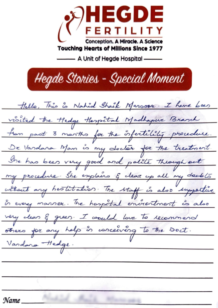 HEGDE
FERTILITY
Conception. A Miracle. A Science
Touching Hearts of Millions Since 1977
A Unit of Hegde Hospital
Hegde Stories - Special Moment
Hello, This is Nahid Shaik Mansoor. I have been
visited the Hedge Horspital Madhapur Branch
from past 3 months for the infertility procedure
Dr Vandana Mam is my doctor for the treatment
She has been very good and polite through out
my procedure. She explains & clear up all my doubts
without any hestitation. The staff is also supportive
in every manner. The hospital environment is also
very clean & green. I would love to recommend
others for any help in conceiving to the best.
Vandana Hedge.
Name